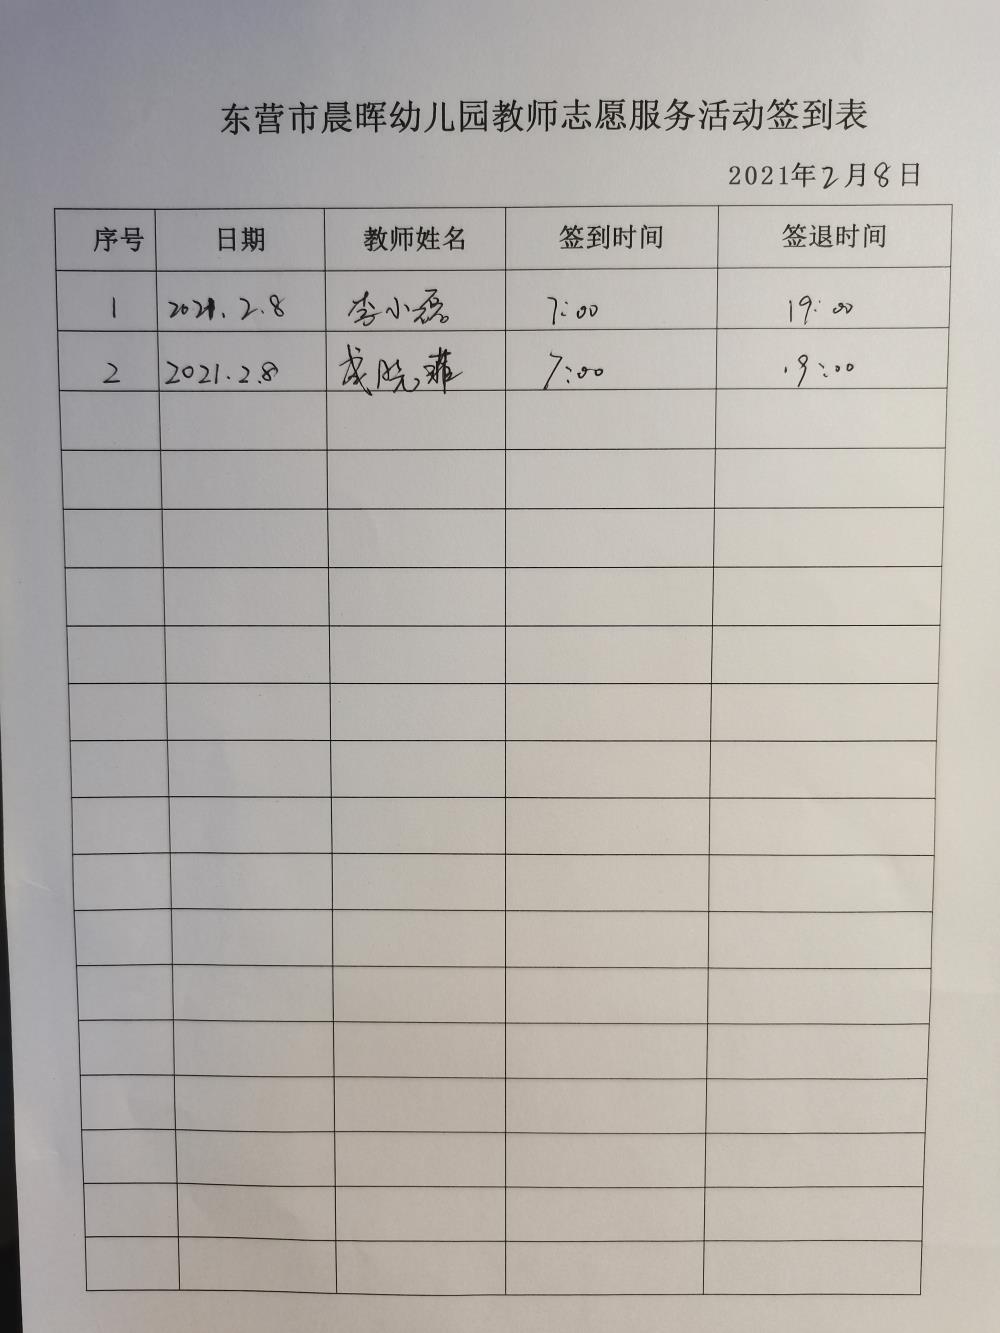 东营市晨晖幼儿园教师志愿服务活动签到表
2021年2月8日
序号 日期 教师姓名 签到时间 签退时间
1 2021.2.8 李小磊 7:00 19:00
2 2021.2.8 晓菲 7:00 :00